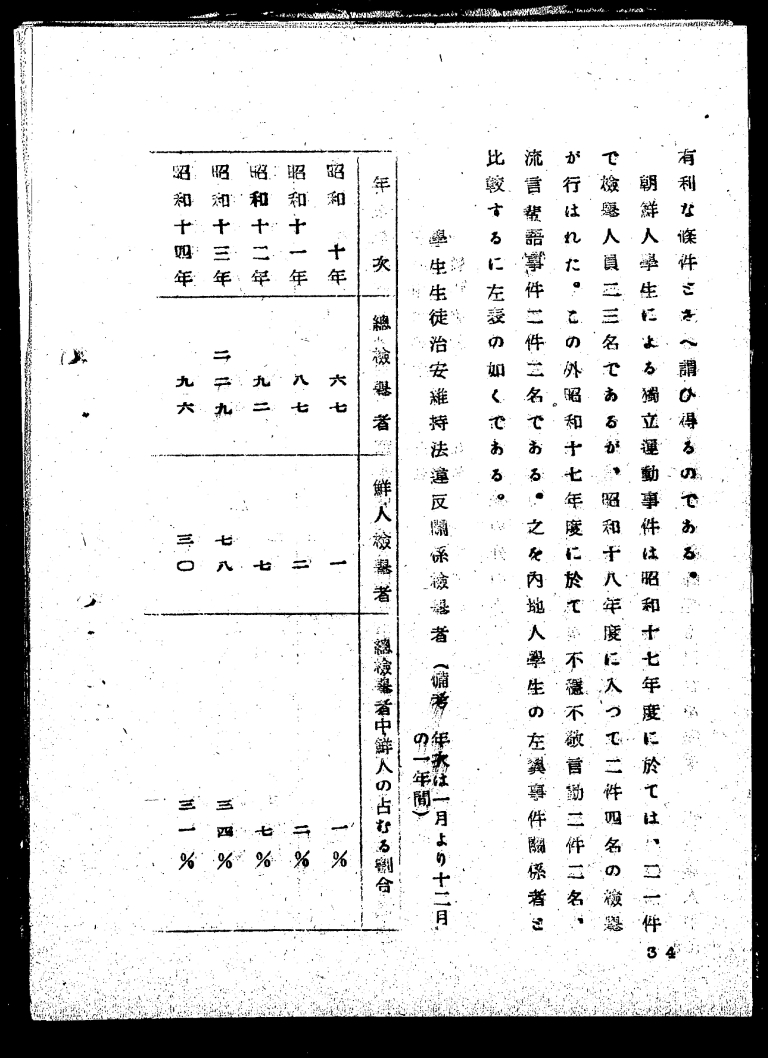 有利な條件とさへ謂ひ得るのである。
朝鮮人學生による獨立運動事件は昭和十七年度に於ては、二一件
で檢擧人員二三名であるが、昭和十八年度に入つて二件四名の檢擧
が行はれた。この外昭和十七年度に於て不穩不敬言動二件二名、
流言蜚語事件二件二名である。之を內地人學生の左翼事件關係者と
比較するに左表の如くである。
學生生徒治安維持法違反關係檢擧者（備考 年次は一月より十二月
の一年間）
年次 總檢擧者 鮮人檢擧者 總檢擧者中鮮人の占むる割合
昭和 十年 六七 一 一%
昭和十一年 八七 二 二%
昭和十二年 九二 七 七%
昭和十三年 二二九 七八 三四%
昭和十四年 九六 三〇 三一%
34